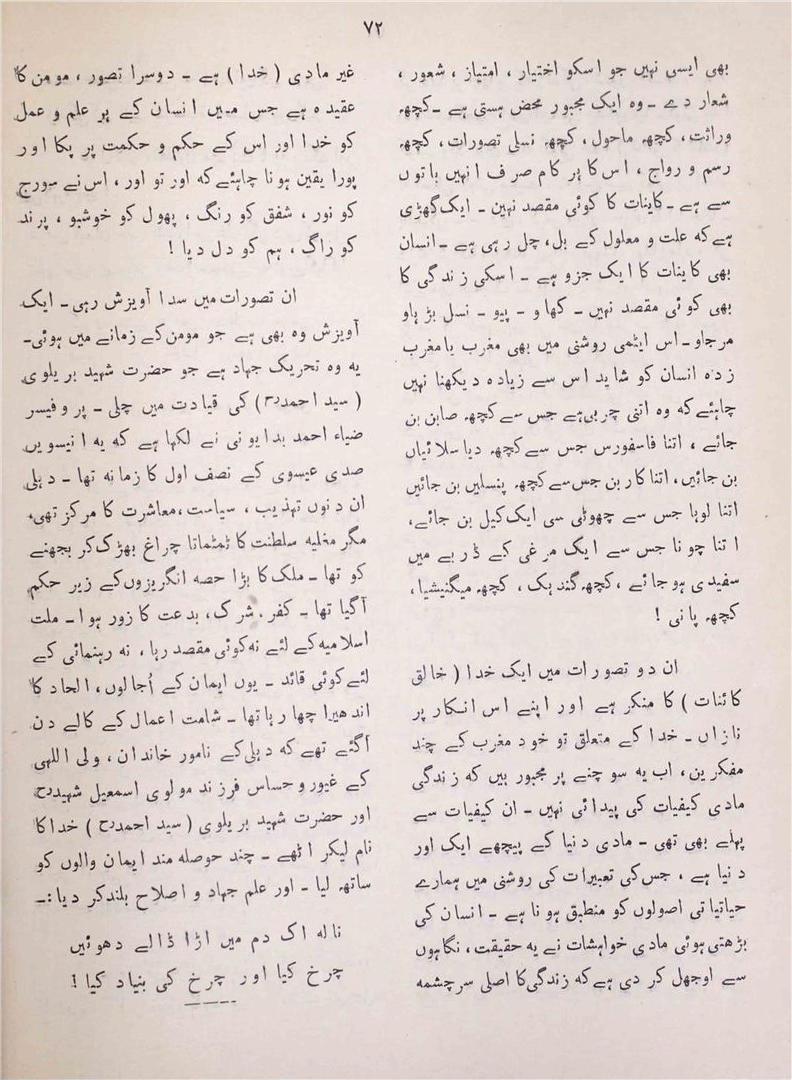 ۷۲
بھی ایسی نہیں جو اسکو اختیار ، امتیاز ، شعور ،
شعار دے ۔ وہ ایک مجبور محض ہستی ہے ۔ کچھ
وراثت ، کچھ ماحول ، کچھ نسلی تصورات ، کچھ
رسم و رواج ، اس کا ہر کام صرف انہیں باتوں
سے ہے ۔ کاینات کا کوئی مقصد نہین ۔ ایک گھڑی
ہے کہ علت و معلول کے بل ، چل رہی ہے ۔ انسان
بھی کاینات کا ایک جزو ہے ۔ اسکی زندگی کا
بھی کوئی مقصد نہیں ۔ کھاو ۔ پیو ۔ نسل بڑھاو
مرجاو ۔ اس ایٹمی روشنی میں بھی مغرب یا مغرب
زدہ انسان کو شاید اس سے زیادہ دیکھنا نہیں
چاہئے کہ وہ اتنی چربی ہے جس سے کچھ صابن بن
جائے ، اتنا فاسفورس جس سے کچھ دیا سلائیاں
بن جائیں ، اتنا کاربن جس سے کچھ پنسلیں بن جائیں
اتنا لوہا جس سے چھوٹی سی ایک کیل بن جائے ،
اتنا چونا جس سے ایک مرغی کے ڈربے میں
سفیدی ہوجائے ، کچھ گندھک ، کچھ میگنیشیا ،
کچھ پانی !
ان دو تصورات میں ایک خدا ( خالق
کائنات ) کا منکر ہے اور اپنے اس انکار پر
نازاں ۔ خدا کے متعلق تو خود مغرب کے چند
مفکرین ، اب یہ سوچنے پر مجبور ہیں کہ زندگی
مادی کیفیات کی پیدائی نہیں ۔ ان کیفیات سے
پہلے بھی تھی ۔ مادی دنیا کے پیچھے ایک اور
دنیا ہے ، جس کی تعبیرات کی روشنی میں ہمارے
حیاتیاتی اصولوں کو منطبق ہونا ہے ۔ انسان کی
بڑھتی ہوئی مادی خواہشات نے یہ حقیقت ، نگاہوں
سے اوجھل کر دی ہے کہ زندگی کا اصلی سرچشمہ
غیر مادی ( خدا ) ہے ۔ دوسرا تصور ، مومن کا
عقیدہ ہے جس میں انسان کے ہر علم و عمل
کو خدا اور اس کے حکم و حکمت پر پکا اور
پورا یقین ہونا چاہئے کہ اور تو اور ، اس نے سورج
کو نور ، شفق کو رنگ ، پھول کو خوشبو ، پرند
کو راگ ، ہم کو دل دیا !
ان تصورات میں سدا آویزش رہی ۔ ایک
آویزش وہ بھی ہے جو مومن کے زمانے میں ہوئی ۔
یہ وہ تحریک جہاد ہے جو حضرت شہید بریلوی
( سید احمدرح ) کی قیادت میں چلی ۔ پروفیسر
ضیاء احمد بدایونی نے لکھا ہے کہ یہ انیسویں
صدی عیسوی کے نصف اول کا زمانہ تھا ۔ دہلی
ان دنوں تہذیب ، سیاست ، معاشرت کا مرکز تھی ،
مگر مغلیہ سلطنت کا ٹمٹماتا چراغ بھڑک کر بجھنے
کو تھا ۔ ملک کا بڑا حصہ انگریزوں کے زیر حکم
آگیا تھا ۔ کفر ، شرک ، بدعت کا زور ہوا ۔ ملت
اسلامیہ کے لئے نہ کوئی مقصد رہا ، نہ رہنمائی کے
لئے کوئی قائد ۔ یوں ایمان کے اُجالوں ، الحاد کا
اندھیرا چھا رہا تھا ۔ شامت اعمال کے کالے دن
آگئے تھے کہ دہلی کے نامور خاندان ، ولی اللہی
کے غیور و حساس فرزند مولوی اسمعیل شہیدرح
اور حضرت شہید بریلوی ( سید احمدرح ) خدا کا
نام لیکر اٹھے ۔ چند حوصلہ مند ایمان والوں کو
ساتھ لیا ۔ اور علم جہاد و اصلاح بلند کر دیا :۔
نالہ اک دم میں اڑا ڈالے دھوئیں
چرخ کیا اور چرخ کی بنیاد کیا !